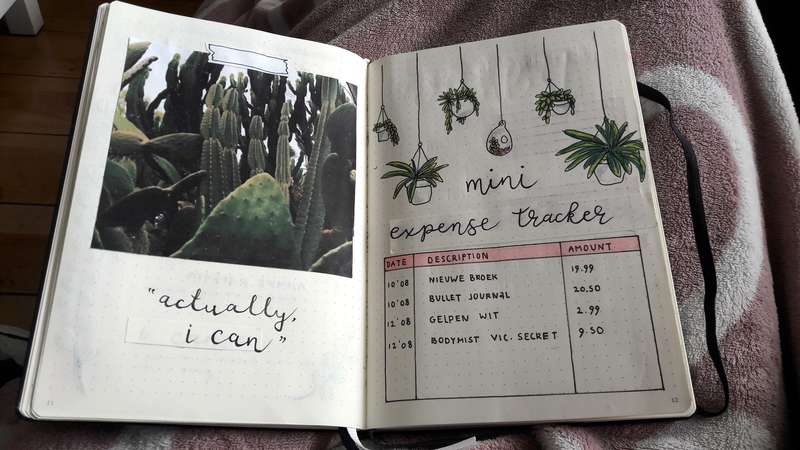 "actually,
i can"
11
mini
expense tracker
DATE DESCRIPTION AMOUNT
10'08 NIEUWE BROEK 19.99
10'08 BULLET JOURNAL 20.50
12'08 GELPEN WIT 2.99
12'08 BODYMIST VIC. SECRET 9.50
12